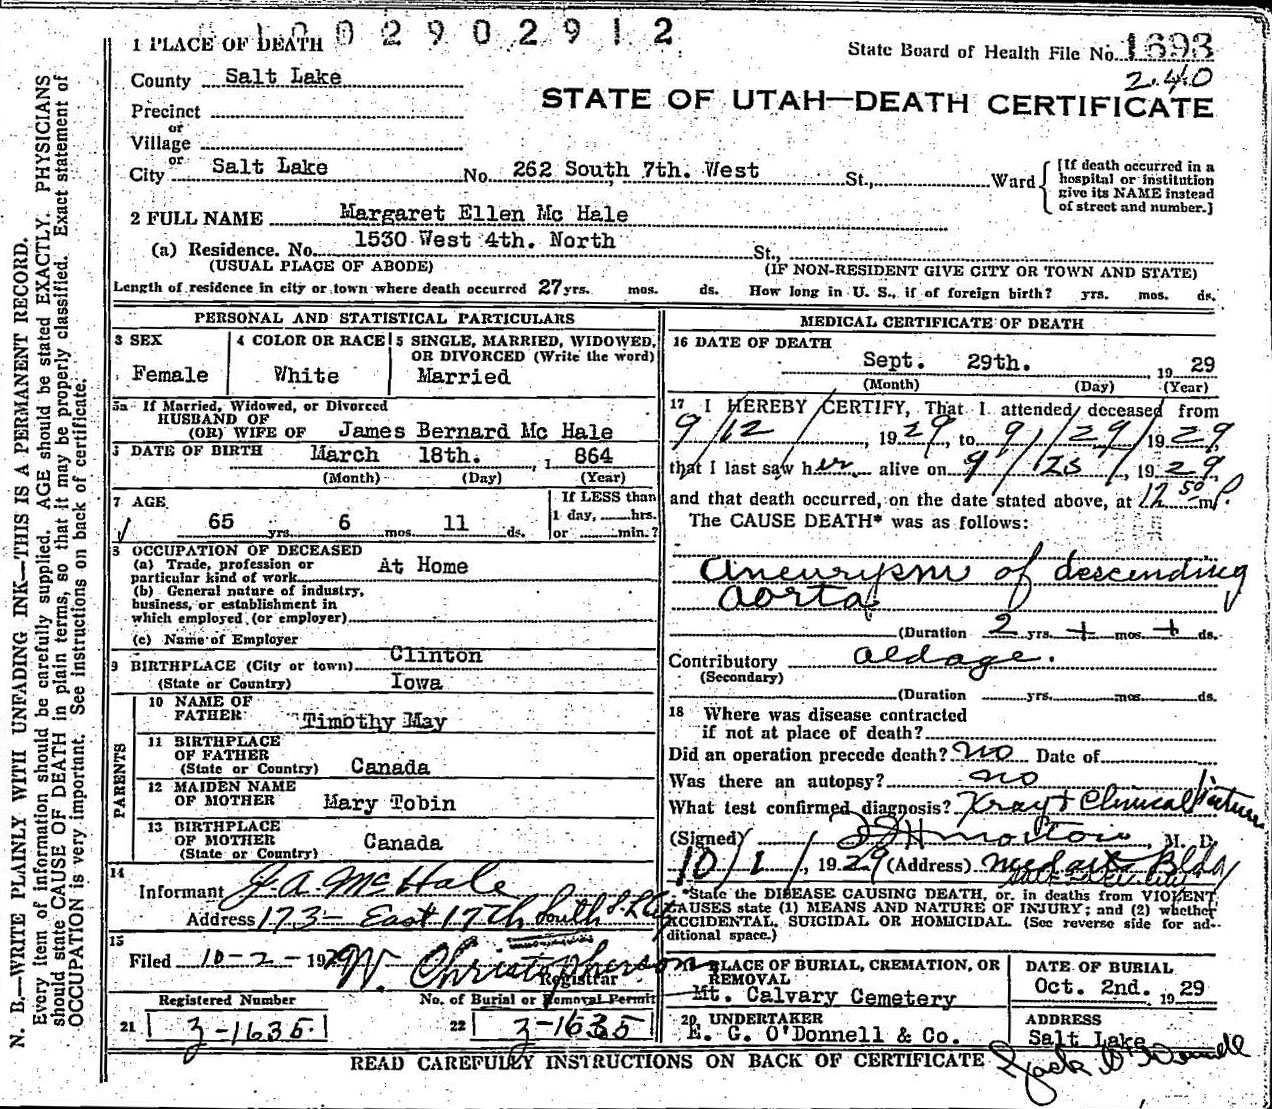 0 0 2 9 0 2 9 1 2
1 PLACE OF DEATH
State Board of Health File No. 1693
2.40
County Salt Lake
STATE OF UTAH—DEATH CERTIFICATE
Precinct
or
Village
or
City Salt Lake No. 262 South 7th. West St., Ward
[If death occurred in a
hospital or institution
give its NAME instead
of street and number.]
2 FULL NAME Margaret Ellen Mc Hale
(a) Residence. No. 1530 West 4th. North St.,
(USUAL PLACE OF ABODE) (IF NON-RESIDENT GIVE CITY OR TOWN AND STATE)
Length of residence in city or town where death occurred 27 yrs. mos. ds. How long in U. S., if of foreign birth? yrs. mos. ds.
PERSONAL AND STATISTICAL PARTICULARS
3 SEX
Female
4 COLOR OR RACE
White
5 SINGLE, MARRIED, WIDOWED,
OR DIVORCED (Write the word)
Married
5a If Married, Widowed, or Divorced
HUSBAND OF
(OR) WIFE OF James Bernard Mc Hale
DATE OF BIRTH March 18th. , 1 864
(Month) (Day) (Year)
7 AGE
65 yrs. 6 mos. 11 ds.
If LESS than
1 day, hrs.
or min.?
8 OCCUPATION OF DECEASED
(a) Trade, profession or
particular kind of work At Home
(b) General nature of industry,
business, or establishment in
which employed (or employer)
(c) Name of Employer
9 BIRTHPLACE (City or town) Clinton
(State or Country) Iowa
PARENTS
10 NAME OF
FATHER Timothy May
11 BIRTHPLACE
OF FATHER
(State or Country) Canada
12 MAIDEN NAME
OF MOTHER Mary Tobin
13 BIRTHPLACE
OF MOTHER
(State or Country) Canada
14
Informant J. A. McHale
Address 173 – East 17th South S.L.City
15
Filed 10-2- 1929 W. Christopherson
Registrar
Registered Number
21 3-1635.
No. of Burial or Removal Permit
22 3-1635
MEDICAL CERTIFICATE OF DEATH
16 DATE OF DEATH
Sept. 29th. , 19 29
(Month) (Day) (Year)
17 I HEREBY CERTIFY, That I attended deceased from
9/12, 1929, to 9/29/1929
that I last saw her alive on 9/25, 1929,
and that death occurred, on the date stated above, at 12 50 m P.
The CAUSE DEATH* was as follows:
aneurysm of descending
aorta
(Duration 2 yrs. + mos. + ds.
Contributory old age.
(Secondary)
(Duration yrs. mos. ds.
18 Where was disease contracted
if not at place of death?
Did an operation precede death? no Date of
Was there an autopsy? no
What test confirmed diagnosis? Xray + Clinical Picture
(Signed) M. D.
10/1/, 1929 (Address) Med arts Bldg
*State the DISEASE CAUSING DEATH, or, in deaths from VIOLENT
CAUSES state (1) MEANS AND NATURE OF INJURY; and (2) whether
ACCIDENTAL, SUICIDAL OR HOMICIDAL. (See reverse side for ad-
ditional space.)
PLACE OF BURIAL, CREMATION, OR
REMOVAL
Mt. Calvary Cemetery
DATE OF BURIAL
Oct. 2nd. 19 29
20 UNDERTAKER
E. G. O'Donnell & Co.
ADDRESS
Salt Lake
Jack O'Donnell
READ CAREFULLY INSTRUCTIONS ON BACK OF CERTIFICATE
N. B.—WRITE PLAINLY WITH UNFADING INK—THIS IS A PERMANENT RECORD.
Every item of information should be carefully supplied. AGE should be stated EXACTLY. PHYSICIANS
should state CAUSE OF DEATH in plain terms, so that it may be properly classified. Exact statement of
OCCUPATION is very important. See instructions on back of certificate.